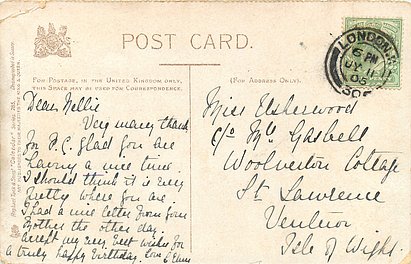 POST CARD.
FOR POSTAGE, IN THE UNITED KINGDOM ONLY,
THIS SPACE MAY BE USED FOR CORRESPONDENCE.
(FOR ADDRESS ONLY).
LONDON
6 PM
JY 11
Dear Nellie
Very many thanks
for P.C. glad you are
having a nice time
I should think it is very
pretty where you are
I had a nice letter from your
Mother the other day.
accept my very best wishes for
a truly happy Birthday. Love
Miss Usherwood
c/o Mrs Gasbell
Woolverton Cottage
St Lawrence
Ventnor
Isle of Wight.